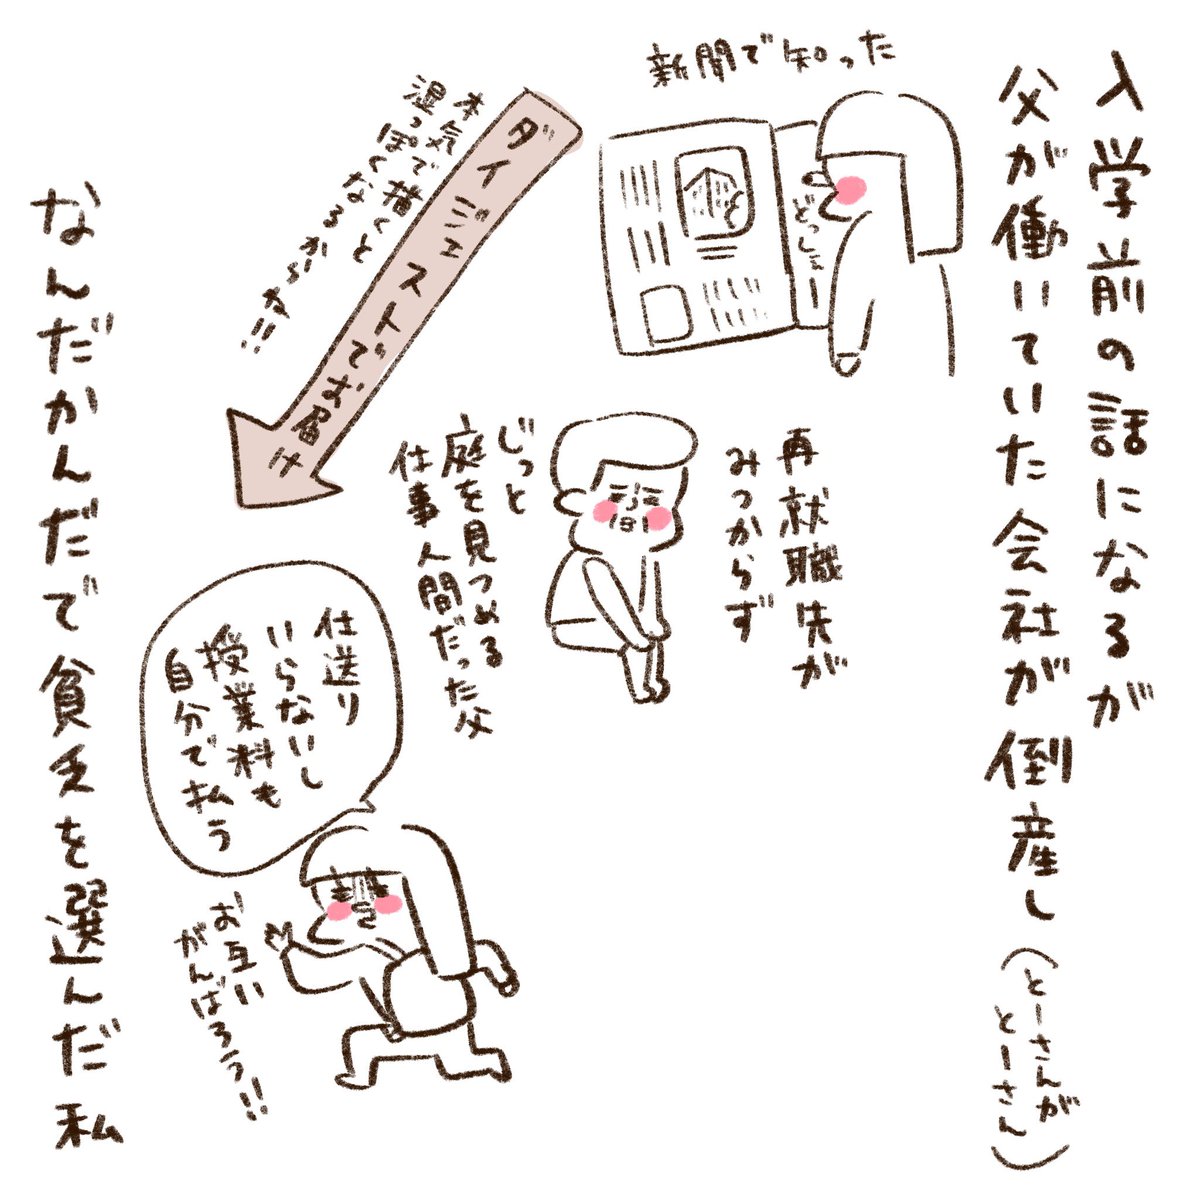 入学前の話になるが
父が働いていた会社が倒産し
(とーさんが
とーさん)
新聞で知った
どっしぇー
ダイジェストでお届け
本気で描くと
湿っぽくなるからな!!
再就職先が
みつからず
じっと
庭を見つめる
仕事人間だった父
仕送り
いらないし
授業料も
自分で払う
お互い
がんばろう!!
なんだかんだで貧乏を選んだ私